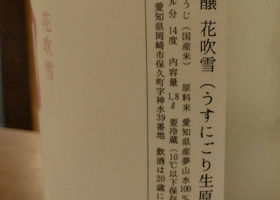 醸 花吹雪 (うすにごり生原
うじ (国産米) 原料米 愛知県産夢山水100%
ル分 14度 内容量 1.8ℓ 要冷蔵 (10℃以下保存
愛知県岡崎市保久町字神水39番地 飲酒は20歳に
花吹雪